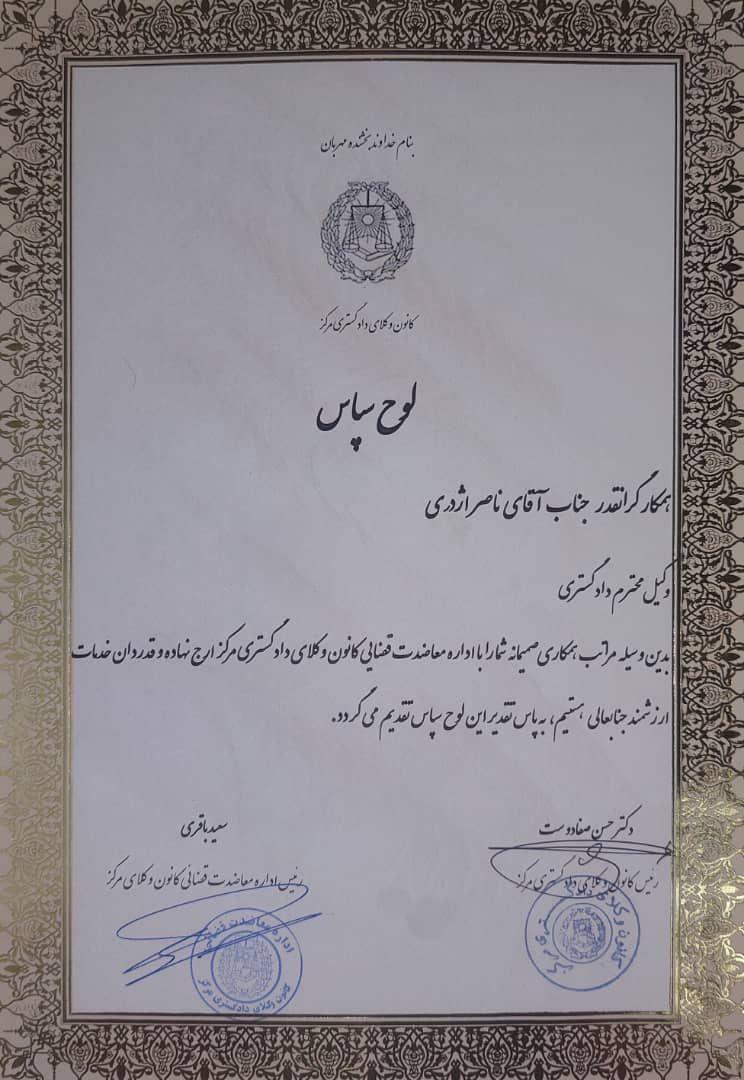 بنام خداوند بخشنده مهربان
کانون وکلای دادگستری مرکز
لوح سپاس
همکار گرانقدر جناب آقای ناصر اژدری
وکیل محترم دادگستری
بدین وسیله مراتب همکاری صمیمانه شما را با اداره معاضدت قضایی کانون وکلای دادگستری مرکز ارج نهاده و قدردان خدمات
ارزشمند جنابعالی هستیم، به پاس تقدیر این لوح سپاس تقدیم می گردد.
دکتر حسن صفادوست
رئیس کانون وکلای دادگستری مرکز
کانون وکلای دادگستری
سعید باقری
رئیس اداره معاضدت قضائی کانون وکلای مرکز
اداره معاضدت قضایی
کانون وکلای دادگستری مرکز